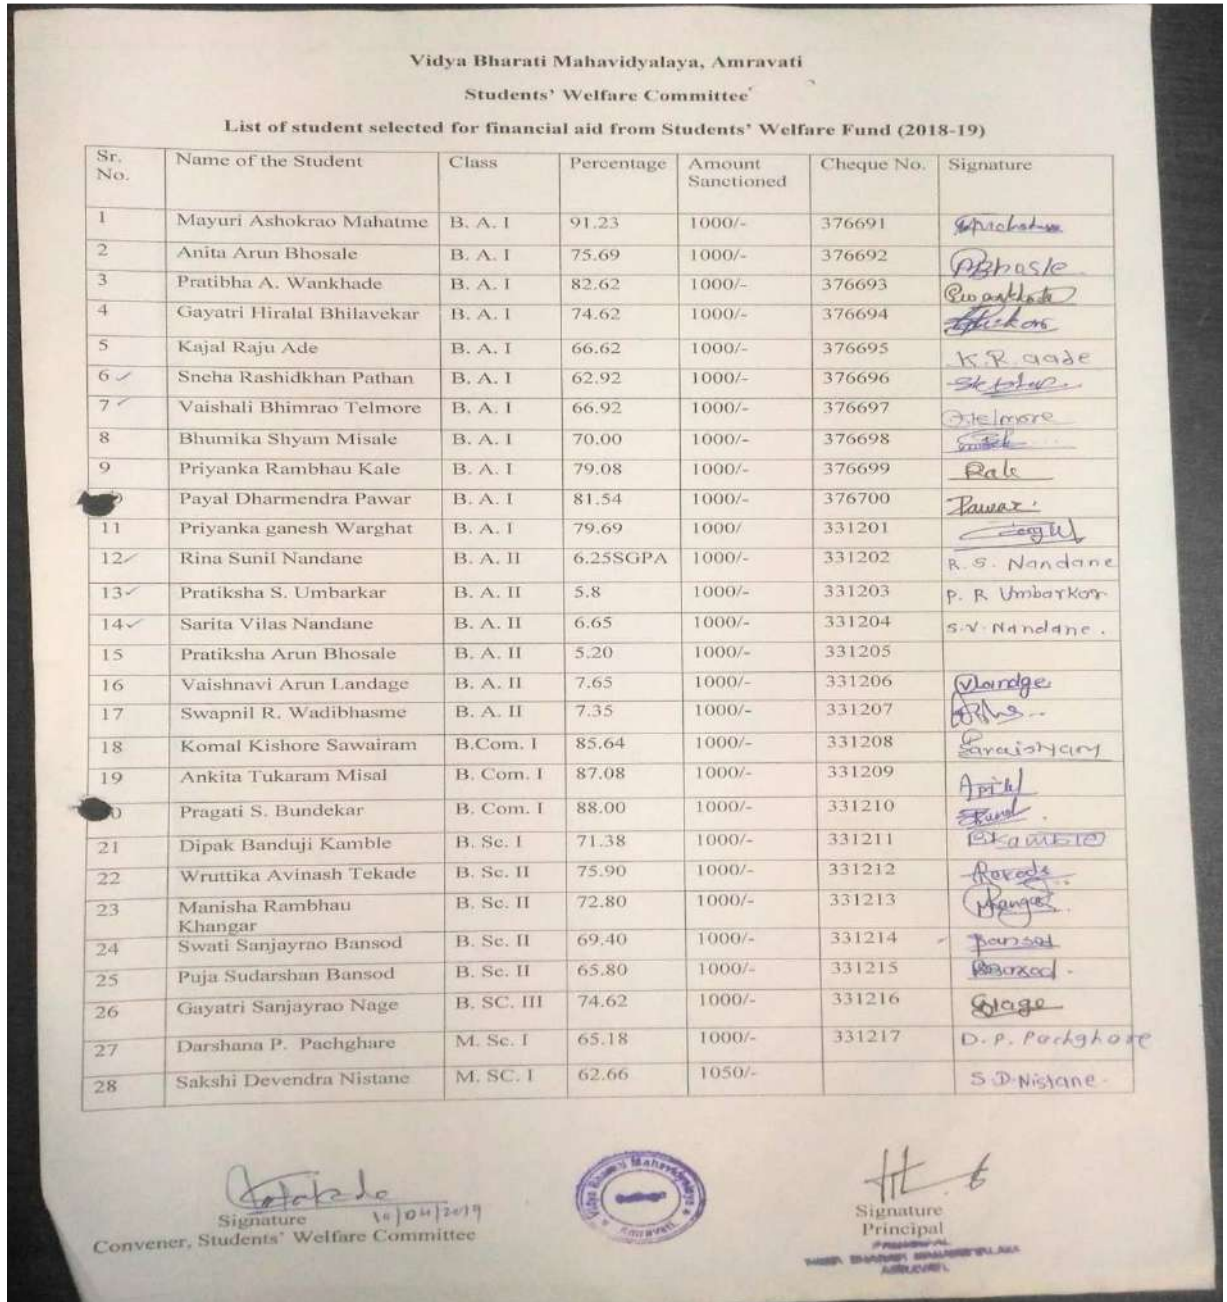 Vidya Bharati Mahavidyalaya, Amravati
Students' Welfare Committee
List of student selected for financial aid from Students' Welfare Fund (2018-19)
Sr. No. Name of the Student Class Percentage Amount Sanctioned Cheque No. Signature
1 Mayuri Ashokrao Mahatme B. A. I 91.23 1000/- 376691
2 Anita Arun Bhosale B. A. I 75.69 1000/- 376692
3 Pratibha A. Wankhade B. A. I 82.62 1000/- 376693
4 Gayatri Hiralal Bhilavekar B. A. I 74.62 1000/- 376694
5 Kajal Raju Ade B. A. I 66.62 1000/- 376695 K.R. aade
6 Sneha Rashidkhan Pathan B. A. I 62.92 1000/- 376696
7 Vaishali Bhimrao Telmore B. A. I 66.92 1000/- 376697
8 Bhumika Shyam Misale B. A. I 70.00 1000/- 376698
9 Priyanka Rambhau Kale B. A. I 79.08 1000/- 376699
Payal Dharmendra Pawar B. A. I 81.54 1000/- 376700 Pawar
11 Priyanka ganesh Warghat B. A. I 79.69 1000/ 331201
12 Rina Sunil Nandane B. A. II 6.25SGPA 1000/- 331202 R. S. Nandane
13 Pratiksha S. Umbarkar B. A. II 5.8 1000/- 331203 P. R Umbarkar
14 Sarita Vilas Nandane B. A. II 6.65 1000/- 331204 S.V. Nandane.
15 Pratiksha Arun Bhosale B. A. II 5.20 1000/- 331205
16 Vaishnavi Arun Landage B. A. II 7.65 1000/- 331206
17 Swapnil R. Wadibhasme B. A. II 7.35 1000/- 331207
18 Komal Kishore Sawairam B.Com. I 85.64 1000/- 331208
19 Ankita Tukaram Misal B. Com. I 87.08 1000/- 331209
0 Pragati S. Bundekar B. Com. I 88.00 1000/- 331210
21 Dipak Banduji Kamble B. Sc. I 71.38 1000/- 331211
22 Wruttika Avinash Tekade B. Sc. II 75.90 1000/- 331212
23 Manisha Rambhau Khangar B. Sc. II 72.80 1000/- 331213
24 Swati Sanjayrao Bansod B. Sc. II 69.40 1000/- 331214 Bansod
25 Puja Sudarshan Bansod B. Sc. II 65.80 1000/- 331215
26 Gayatri Sanjayrao Nage B. SC. III 74.62 1000/- 331216
27 Darshana P. Pachghare M. Sc. I 65.18 1000/- 331217 D. P. Pachghare
28 Sakshi Devendra Nistane M. SC. I 62.66 1050/- S.D. Nistane
10/04/2019
Signature
Convener, Students' Welfare Committee
Vidya Bharati Mahavidyalaya
Amravati
Signature
Principal
PRINCIPAL
VIDYA BHARATI MAHAVIDYALAYA
AMRAVATI.